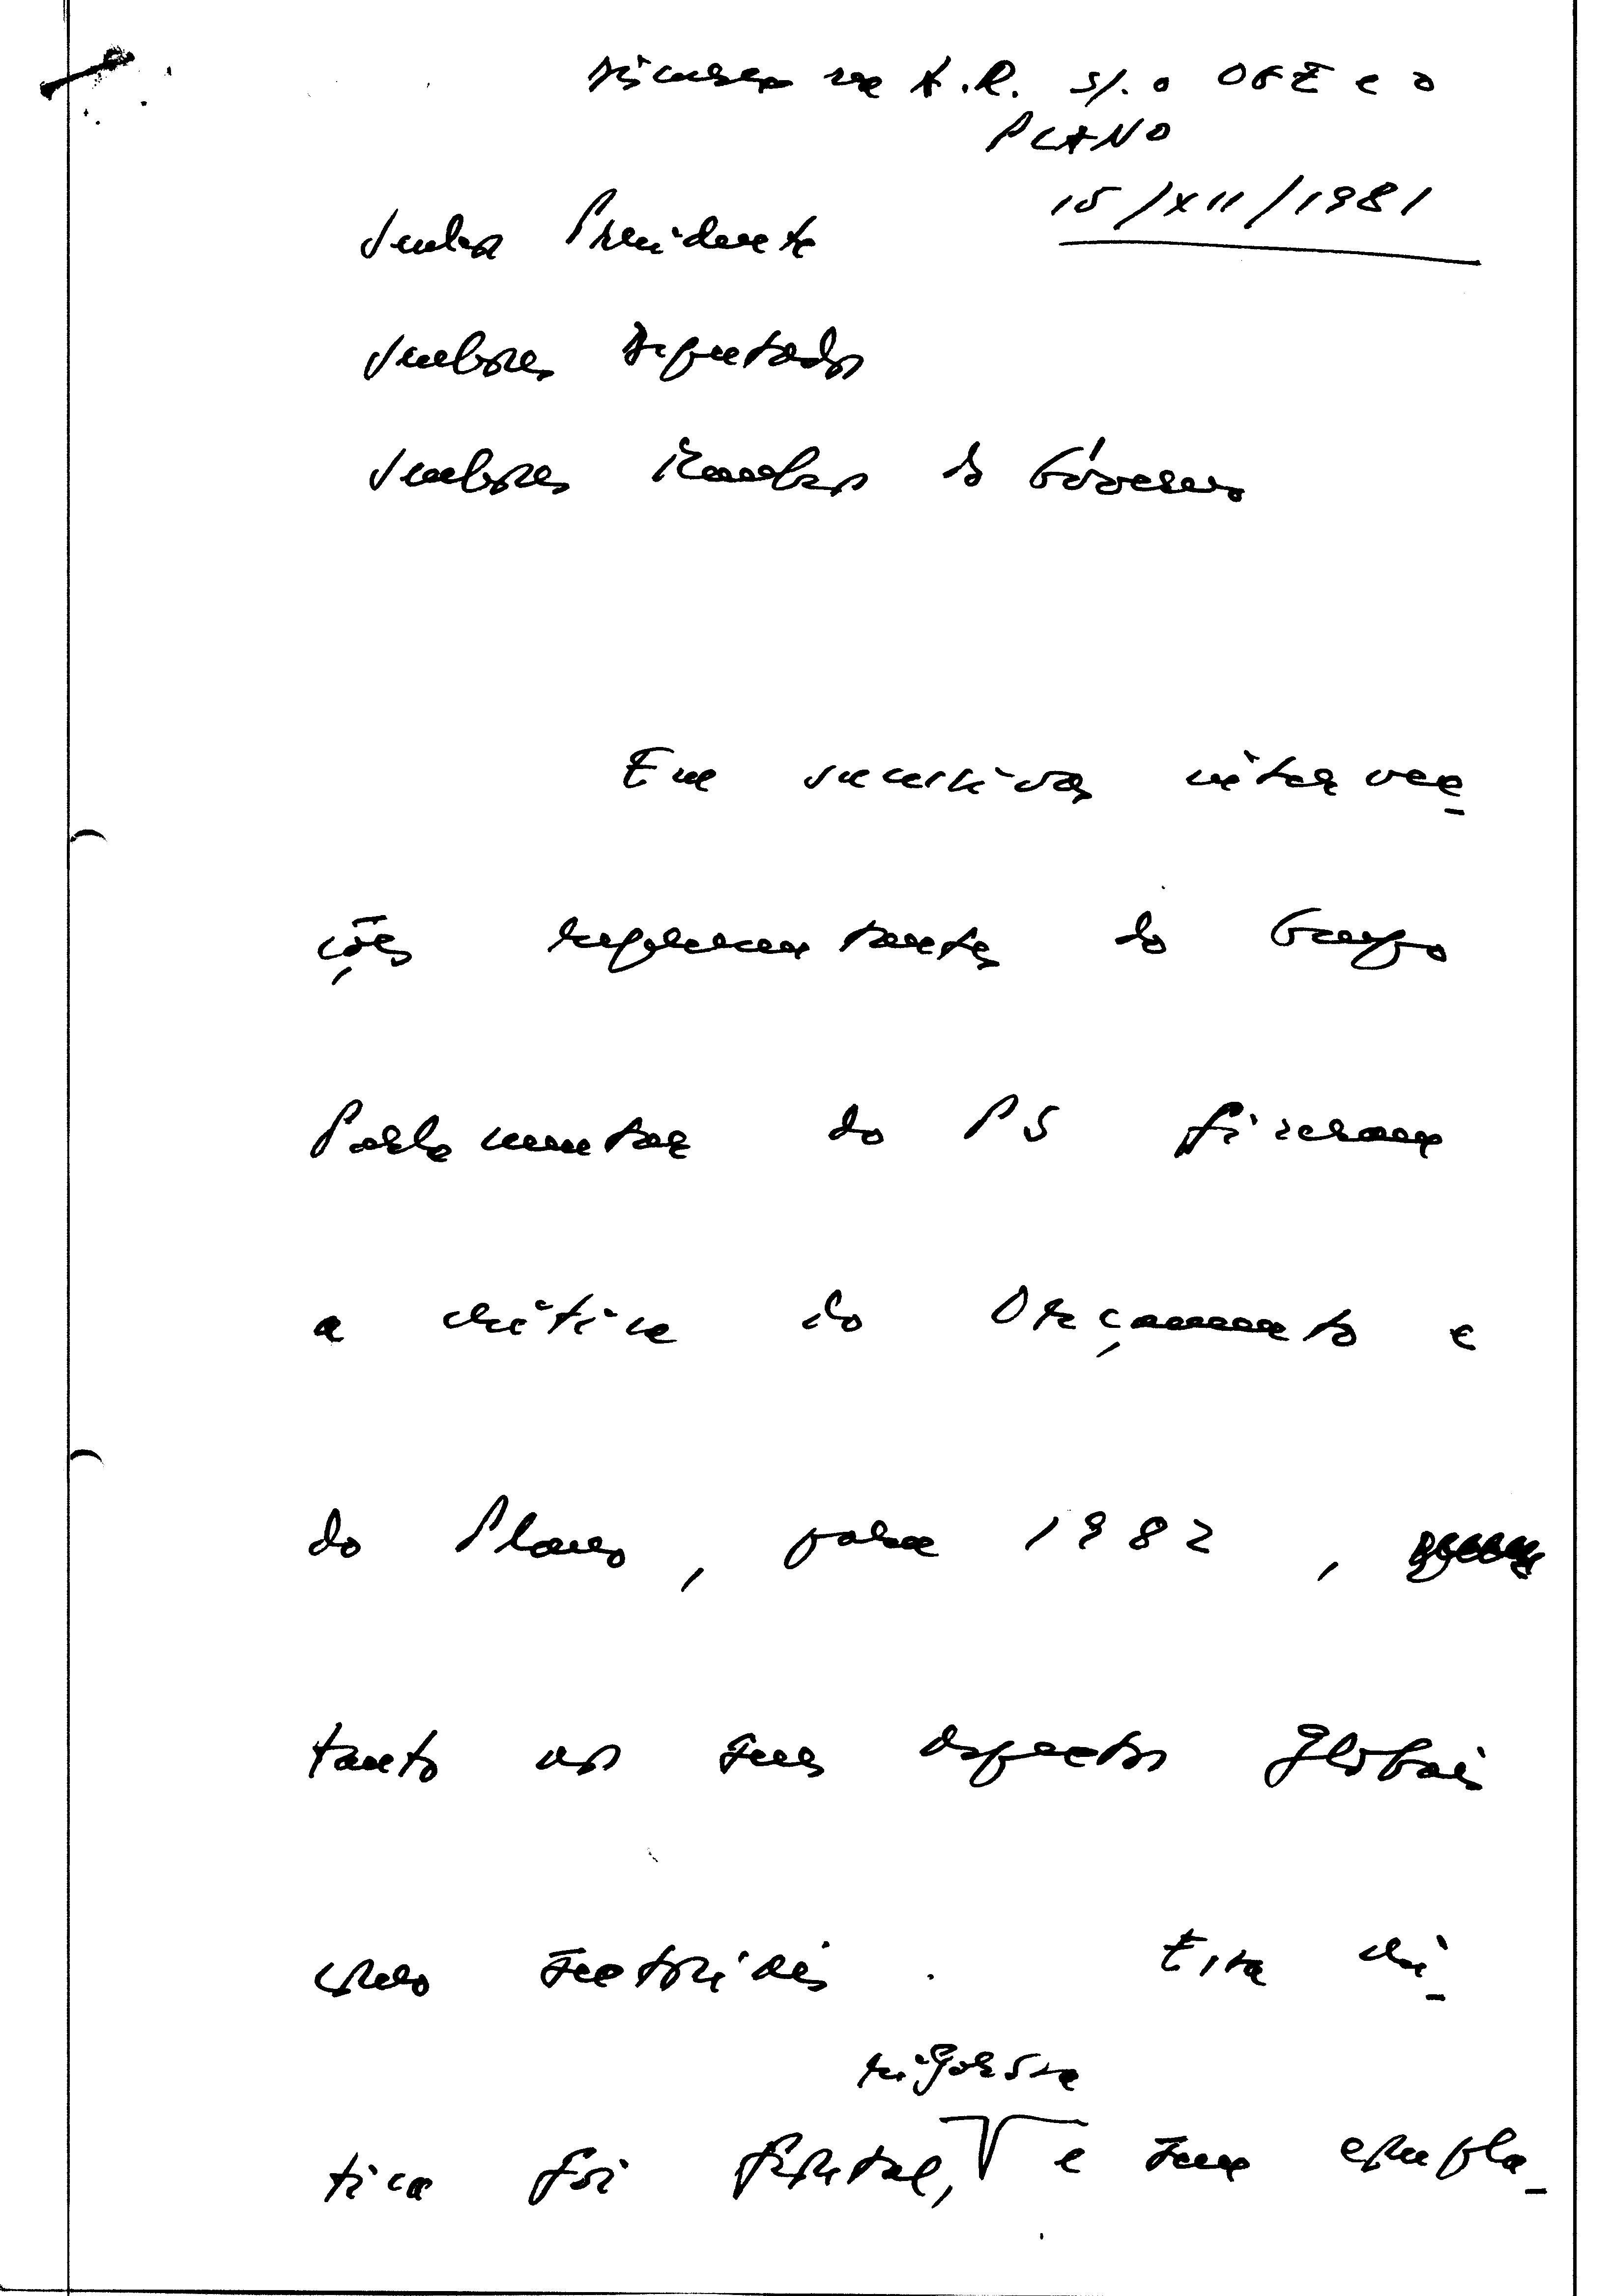 Discurso na A.R. s/. o OGE e o
PLANO
15/XII/1981
Senhor Presidente
Senhores Deputados
Senhores Membros do Govêrno
Em sucessivas interven-
ções representantes do Grupo
Parlamentar do PS fizeram
a crítica do Orçamento e
do Plano, para 1982,
tanto nos seus aspectos globais
como sectoriais. Essa crí-
rigorosa
tica foi frontal, e sem